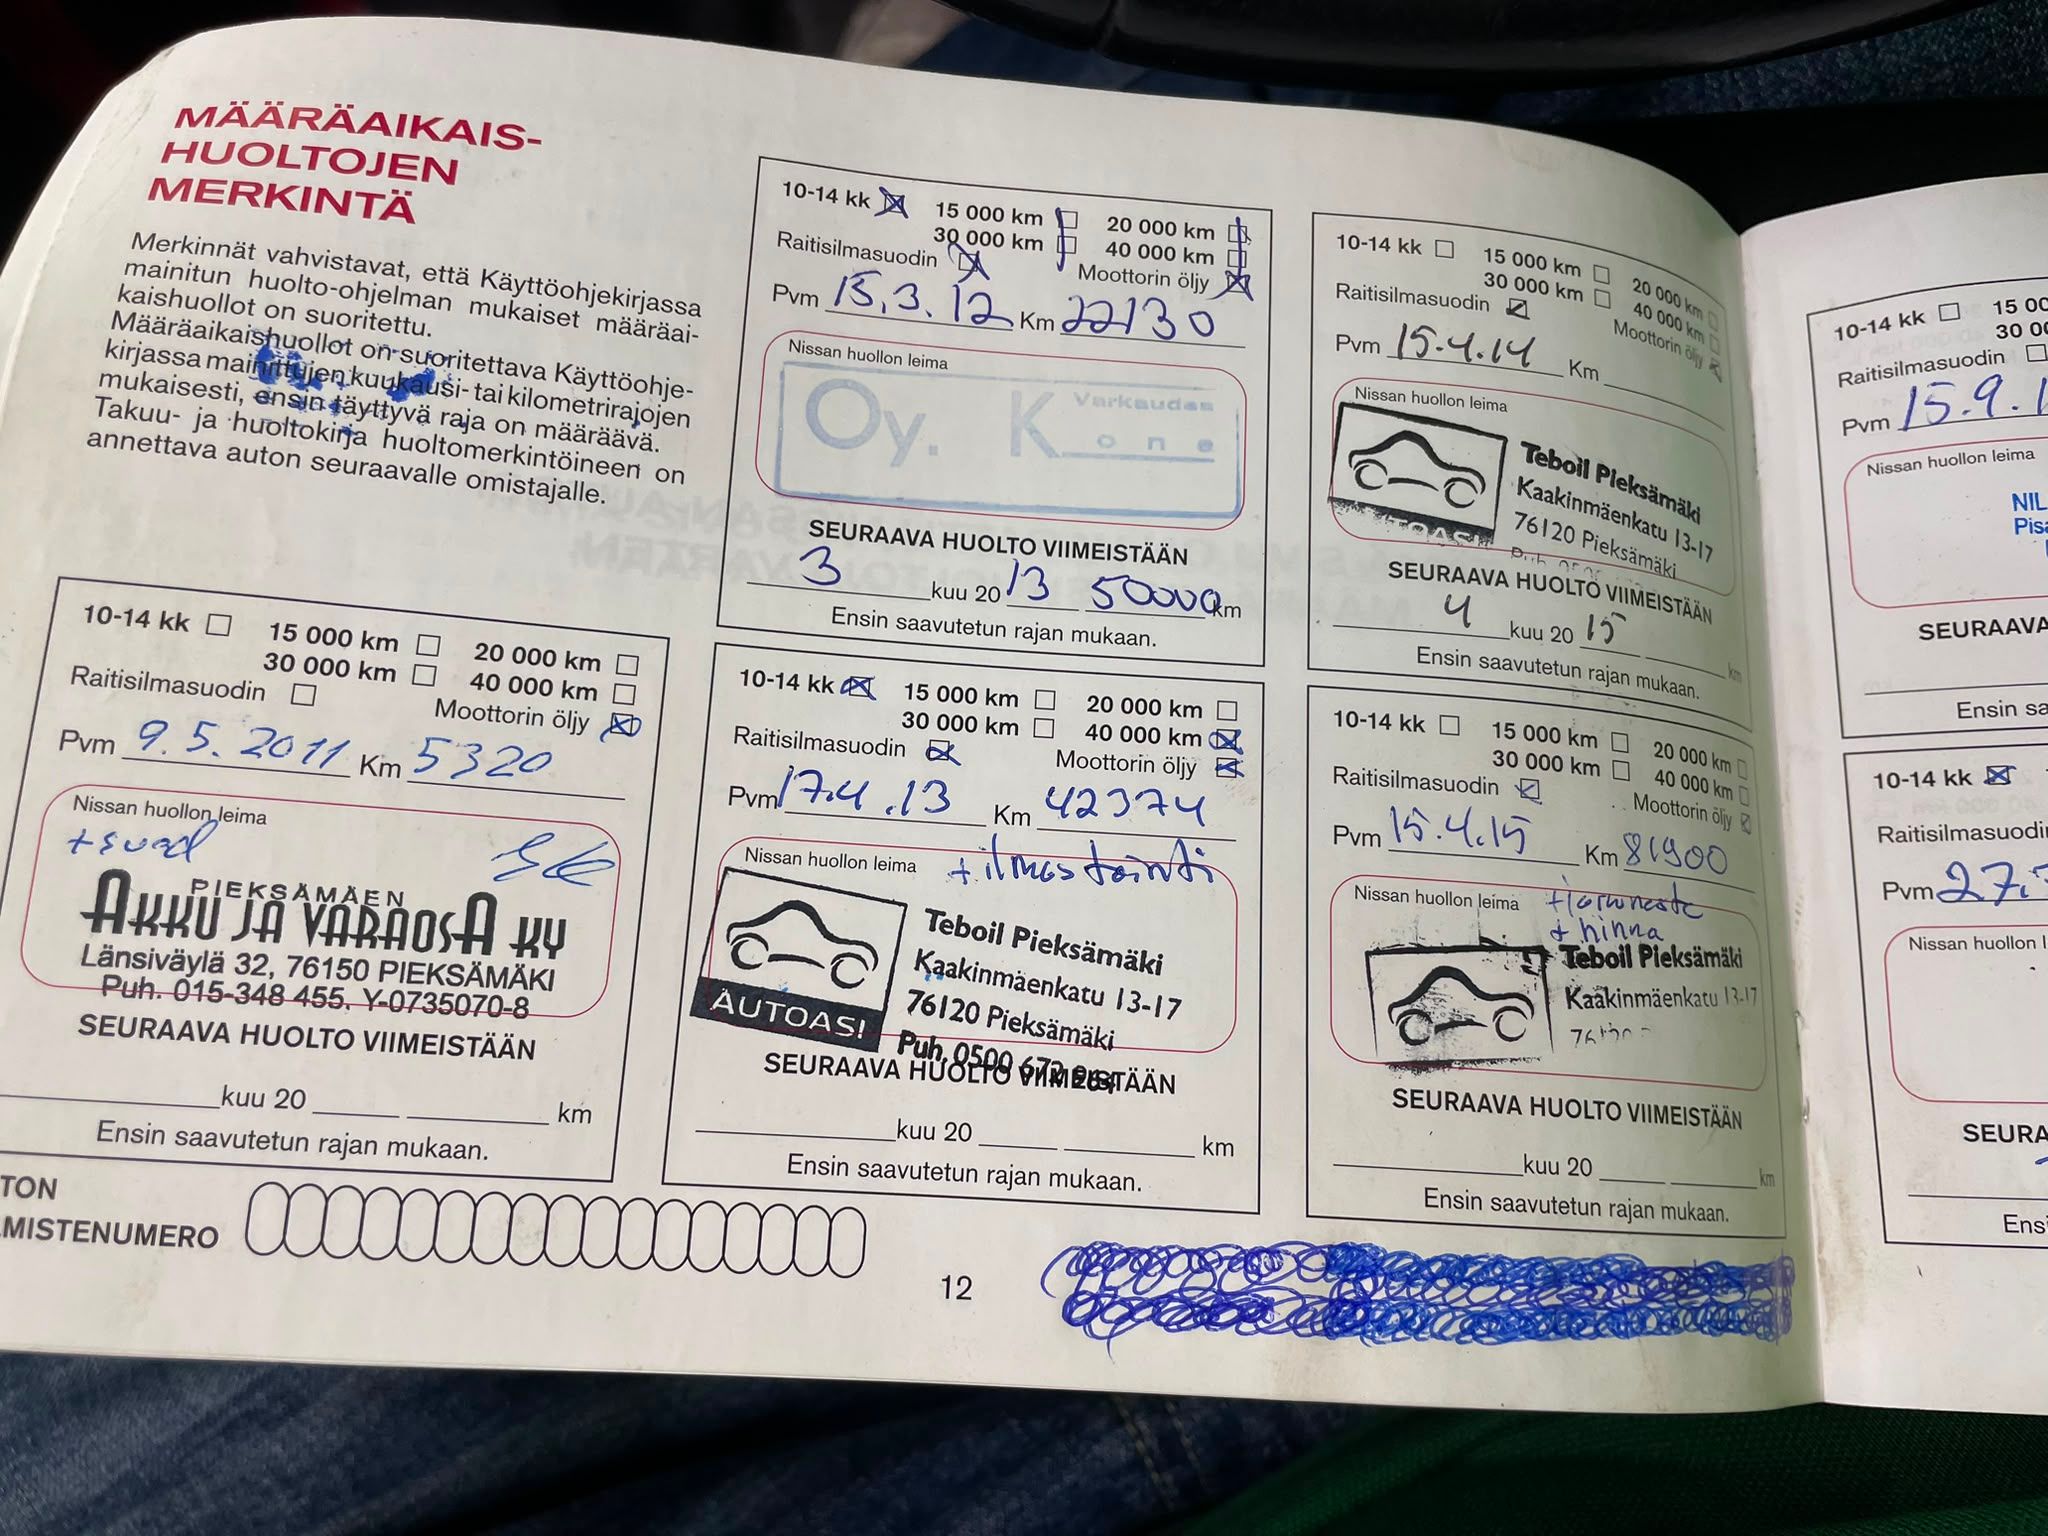 MÄÄRÄAIKAIS-
HUOLTOJEN
MERKINTÄ
Merkinnät vahvistavat, että Käyttöohjekirjassa
mainitun huolto-ohjelman mukaiset määräai-
kaishuollot on suoritettu.
Määräaikaishuollot on suoritettava Käyttöohje-
kirjassa mainittujen kuukausi- tai kilometrirajojen
mukaisesti, ensin täyttyvä raja on määräävä.
Takuu- ja huoltokirja huoltomerkintöineen on
annettava auton seuraavalle omistajalle.
10-14 kk 15 000 km 20 000 km
30 000 km 40 000 km
Raitisilmasuodin Moottorin öljy
Pvm 9.5.2011 Km 5320
Nissan huollon leima
PIEKSÄMÄEN
AKKU JA VARAOSA KY
Länsiväylä 32, 76150 PIEKSÄMÄKI
Puh. 015-348 455. Y-0735070-8
SEURAAVA HUOLTO VIIMEISTÄÄN
kuu 20 km
Ensin saavutetun rajan mukaan.
10-14 kk 15 000 km 20 000 km
30 000 km 40 000 km
Raitisilmasuodin Moottorin öljy
Pvm 15.3.12 Km 22130
Nissan huollon leima
Oy. Varkauden
Kone
SEURAAVA HUOLTO VIIMEISTÄÄN
3 kuu 20 13 50000 km
Ensin saavutetun rajan mukaan.
10-14 kk 15 000 km 20 000 km
30 000 km 40 000 km
Raitisilmasuodin Moottorin öljy
Pvm 17.4.13 Km 42374
Nissan huollon leima + ilmastointi
Teboil Pieksämäki
Kaakinmäenkatu 13-17
76120 Pieksämäki
AUTOASI
Puh. 0500 672
SEURAAVA HUOLTO VIIMEISTÄÄN
kuu 20 km
Ensin saavutetun rajan mukaan.
10-14 kk 15 000 km 20 000 km
30 000 km 40 000 km
Raitisilmasuodin Moottorin öljy
Pvm 15.4.14 Km
Nissan huollon leima
Teboil Pieksämäki
Kaakinmäenkatu 13-17
76120 Pieksämäki
SEURAAVA HUOLTO VIIMEISTÄÄN
4 kuu 20 15 km
Ensin saavutetun rajan mukaan.
10-14 kk 15 000 km 20 000 km
30 000 km 40 000 km
Raitisilmasuodin Moottorin öljy
Pvm 15.4.15 Km 81900
Nissan huollon leima + jarruneste
+ hinna
Teboil Pieksämäki
Kaakinmäenkatu 13-17
SEURAAVA HUOLTO VIIMEISTÄÄN
kuu 20 km
Ensin saavutetun rajan mukaan.
TON
MISTENUMERO
12
10-14 kk 15 00
30 00
Raitisilmasuodin
Pvm 15.9.1
Nissan huollon leima
NIL
Pisa
SEURAAVA
Ensin sa
10-14 kk
Raitisilmasuodin
Pvm 27.
Nissan huollon l
SEURA
Ensi